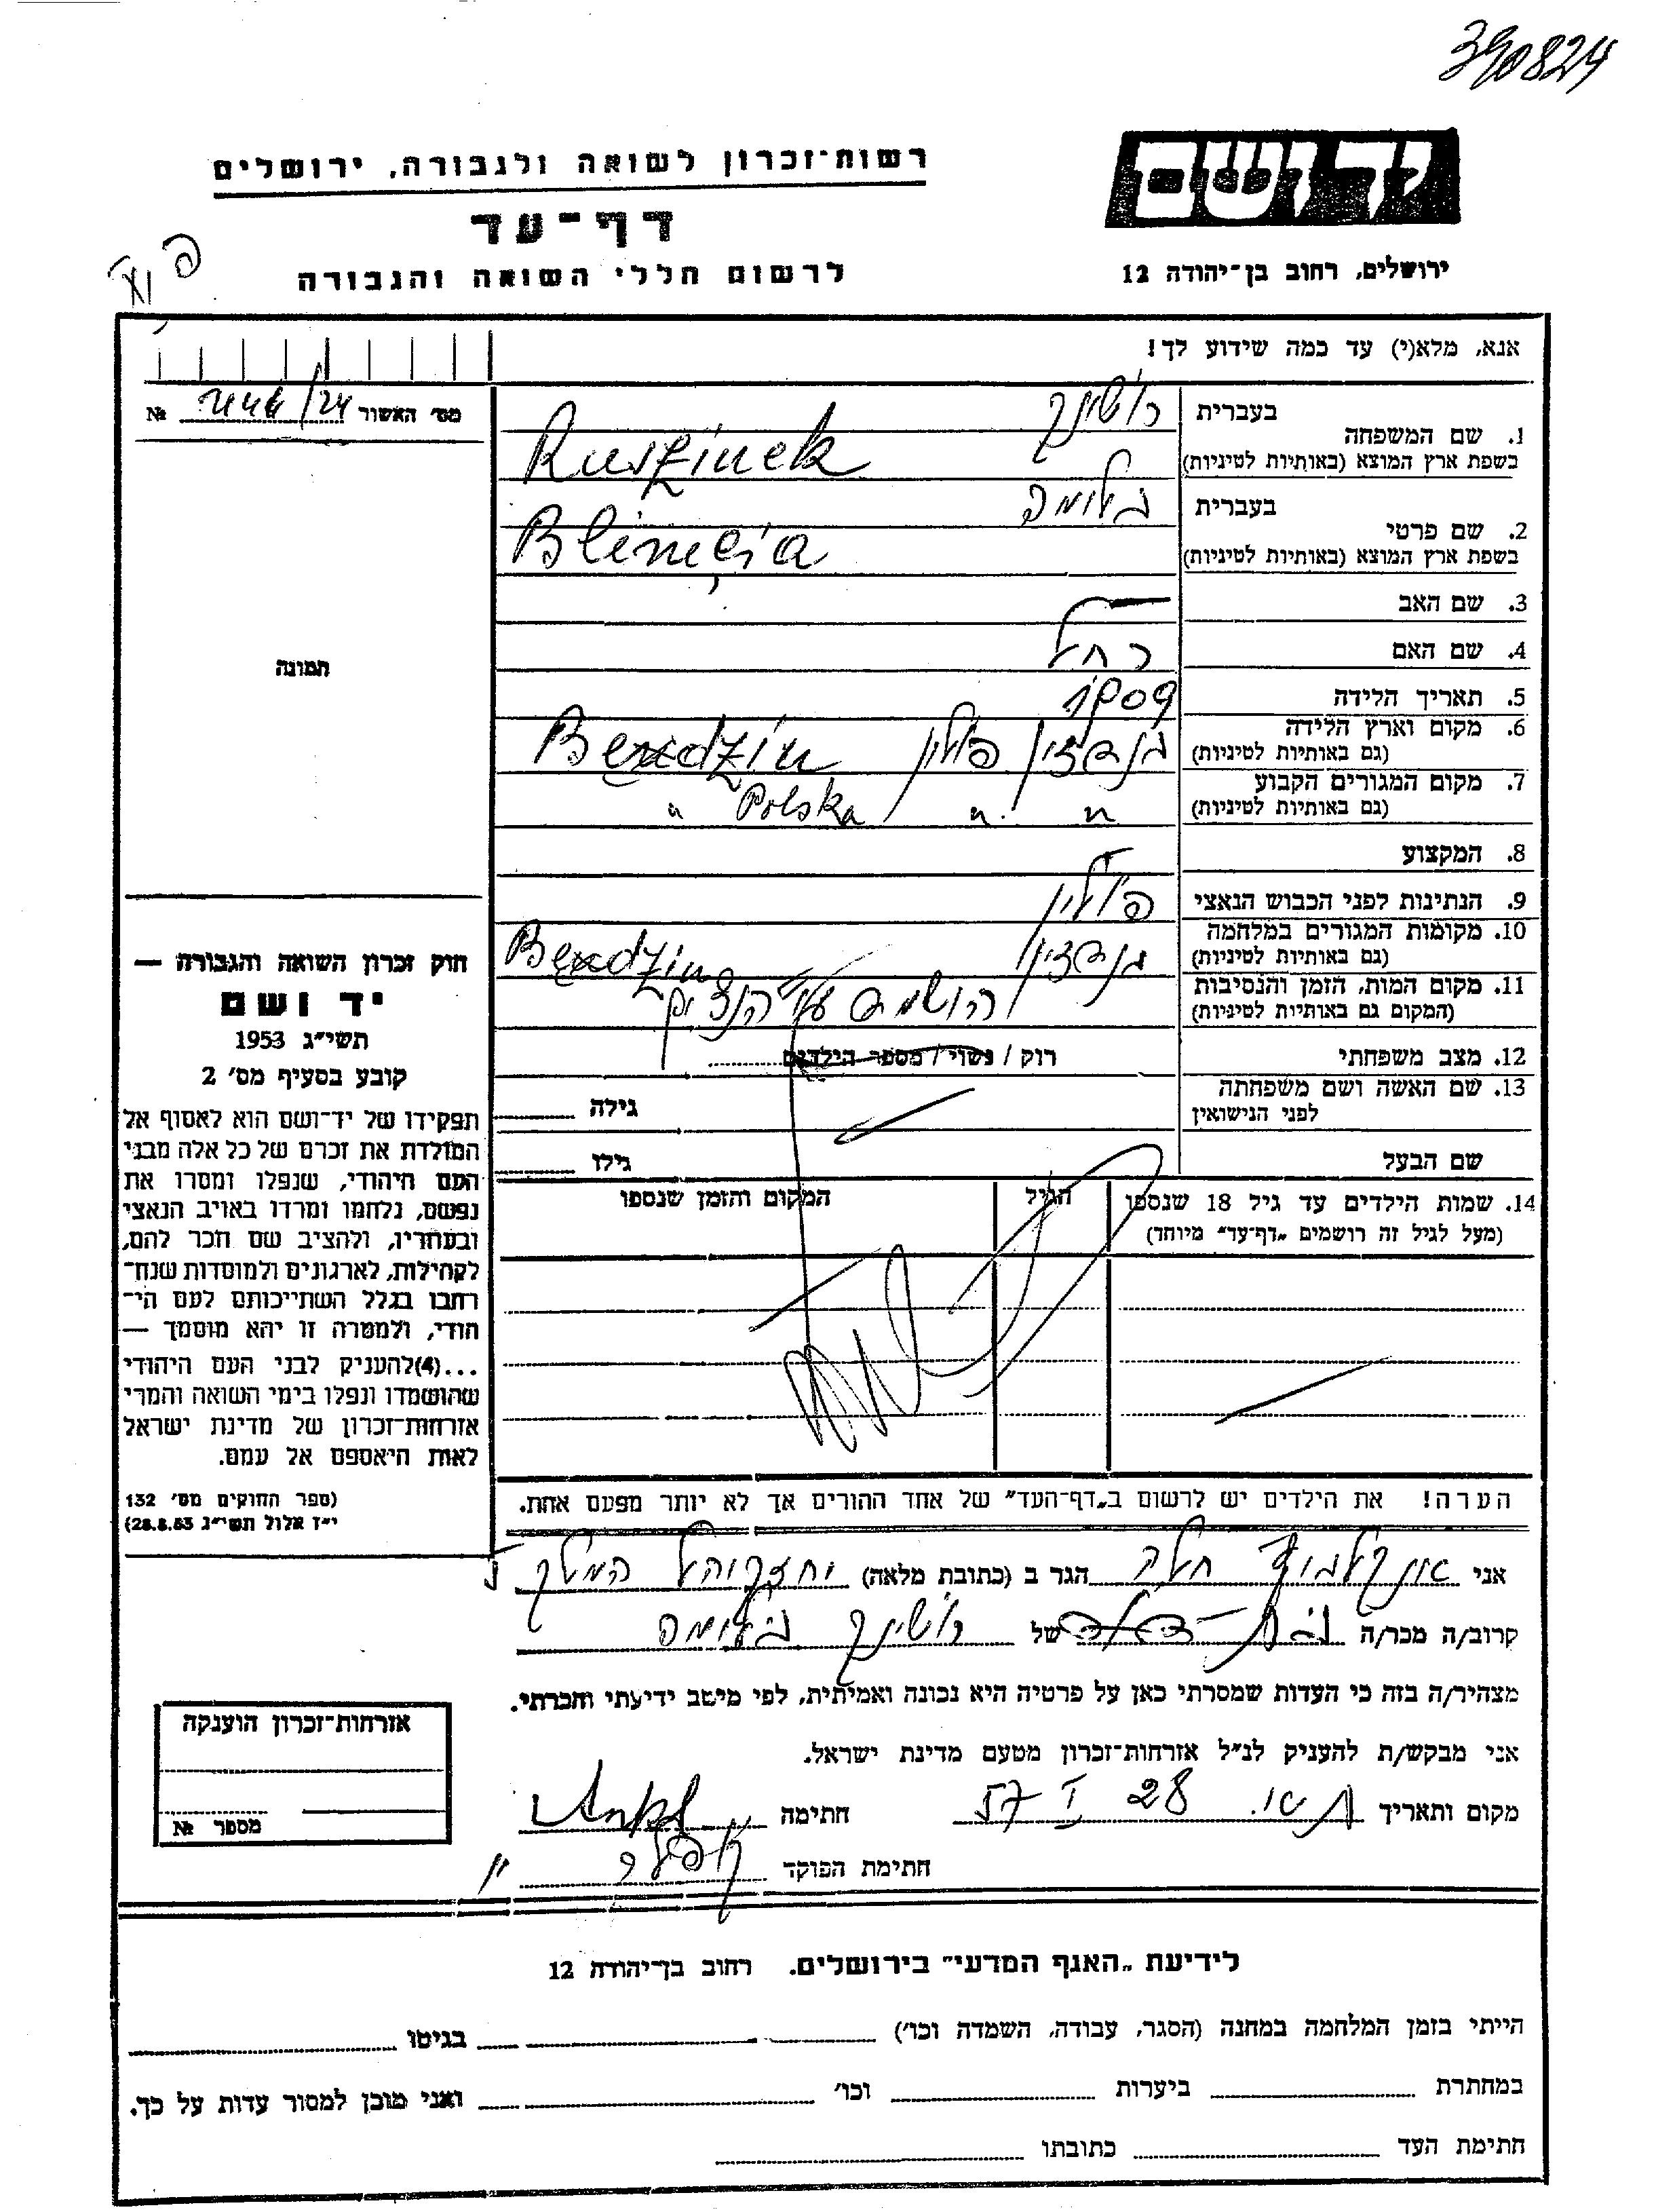 390824
יד ושם
רשות־זכרון לשואה ולגבורה, ירושלים
דף־עד
לרשום חללי השואה והגבורה
ירושלים, רחוב בן־יהודה 12
אנא, מלא(י) עד כמה שידוע לך!
מס׳ האשור №
1. שם המשפחה
בעברית
בשפת ארץ המוצא (באותיות לטיניות)
Ruszinek
2. שם פרטי
בעברית בלומה
בשפת ארץ המוצא (באותיות לטיניות)
3. שם האב
4. שם האם רחל
5. תאריך הלידה 1909
6. מקום וארץ הלידה
(גם באותיות לטיניות)
בנדזין פולין Bendzin
7. מקום המגורים הקבוע
(גם באותיות לטיניות)
" " Polska "
8. המקצוע
9. הנתינות לפני הכבוש הנאצי פולין
10. מקומות המגורים במלחמה
(גם באותיות לטיניות)
בנדזין Bendzin
11. מקום המות, הזמן והנסיבות
(המקום גם באותיות לטיניות)
הושמד ע"י הנצים
12. מצב משפחתי רוק / נשוי / מספר הילדים
13. שם האשה ושם משפחתה
לפני הנישואין
גילה
שם הבעל גילו
14. שמות הילדים עד גיל 18 שנספו
(מעל לגיל זה רושמים „דף־עד״ מיוחד)
הגיל
המקום והזמן שנספו
הערה! את הילדים יש לרשום ב„דף־העד״ של אחד ההורים אך לא יותר מפעם אחת.
תמונה
חוק זכרון השואה והגבורה —
יד ושם
תשי״ג 1953
קובע בסעיף מס׳ 2
תפקידו של יד־ושם הוא לאסוף אל
המולדת את זכרם של כל אלה מבני
העם היהודי, שנפלו ומסרו את
נפשם, נלחמו ומרדו באויב הנאצי
ובעוזריו, ולהציב שם וזכר להם,
לקהילות, לארגונים ולמוסדות שנח־
רבו בגלל השתייכותם לעם הי־
הודי, ולמטרה זו יהא מוסמך —
...(4)להעניק לבני העם היהודי
שהושמדו ונפלו בימי השואה והמרי
אזרחות־זכרון של מדינת ישראל
לאות היאספם אל עמם.
(ספר החוקים מס׳ 132
י״ז אלול תשי״ג 28.8.53)
אני חלה הגר ב (כתובת מלאה)
קרוב/ה מכר/ה של בלומה
מצהיר/ה בזה כי העדות שמסרתי כאן על פרטיה היא נכונה ואמיתית, לפי מיטב ידיעתי והכרתי.
אני מבקש/ת להעניק לנ״ל אזרחות־זכרון מטעם מדינת ישראל.
מקום ותאריך 28 I 57 חתימה
חתימת הפוקד
אזרחות־זכרון הוענקה
מספר №
לידיעת „האגף המדעי״ בירושלים. רחוב בן־יהודה 12
הייתי בזמן המלחמה במחנה (הסגר, עבודה, השמדה וכו׳) בגיטו
במחתרת ביערות וכו׳ ואני מוכן למסור עדות על כך.
חתימת העד כתובתו